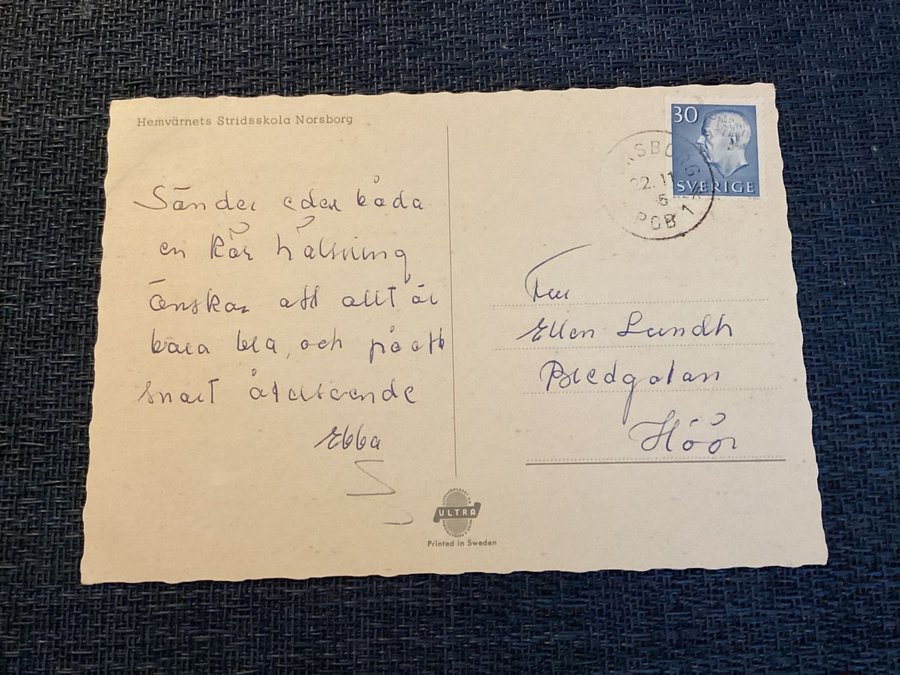 Hemvärnets Stridsskola Norsborg
Sänder eder båda
en kär hälsning
önskar att allt är
bara bra, och på ett
snart återseende
Ebba
30
SVERIGE
22.11
6
POB 1
Fru
Ellen Lundh
Bredgatan
Höör
ULTRA
Printed in Sweden